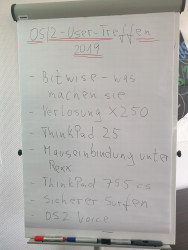 OS/2-User-Treffen
2019
- Bitwise - was
machen sie
- Verlosung X250
- ThinkPad 25
- Mauseinbindung unter
Rexx
- ThinkPad 755 cs
- Sicherer Surfen
- OS2 Voice